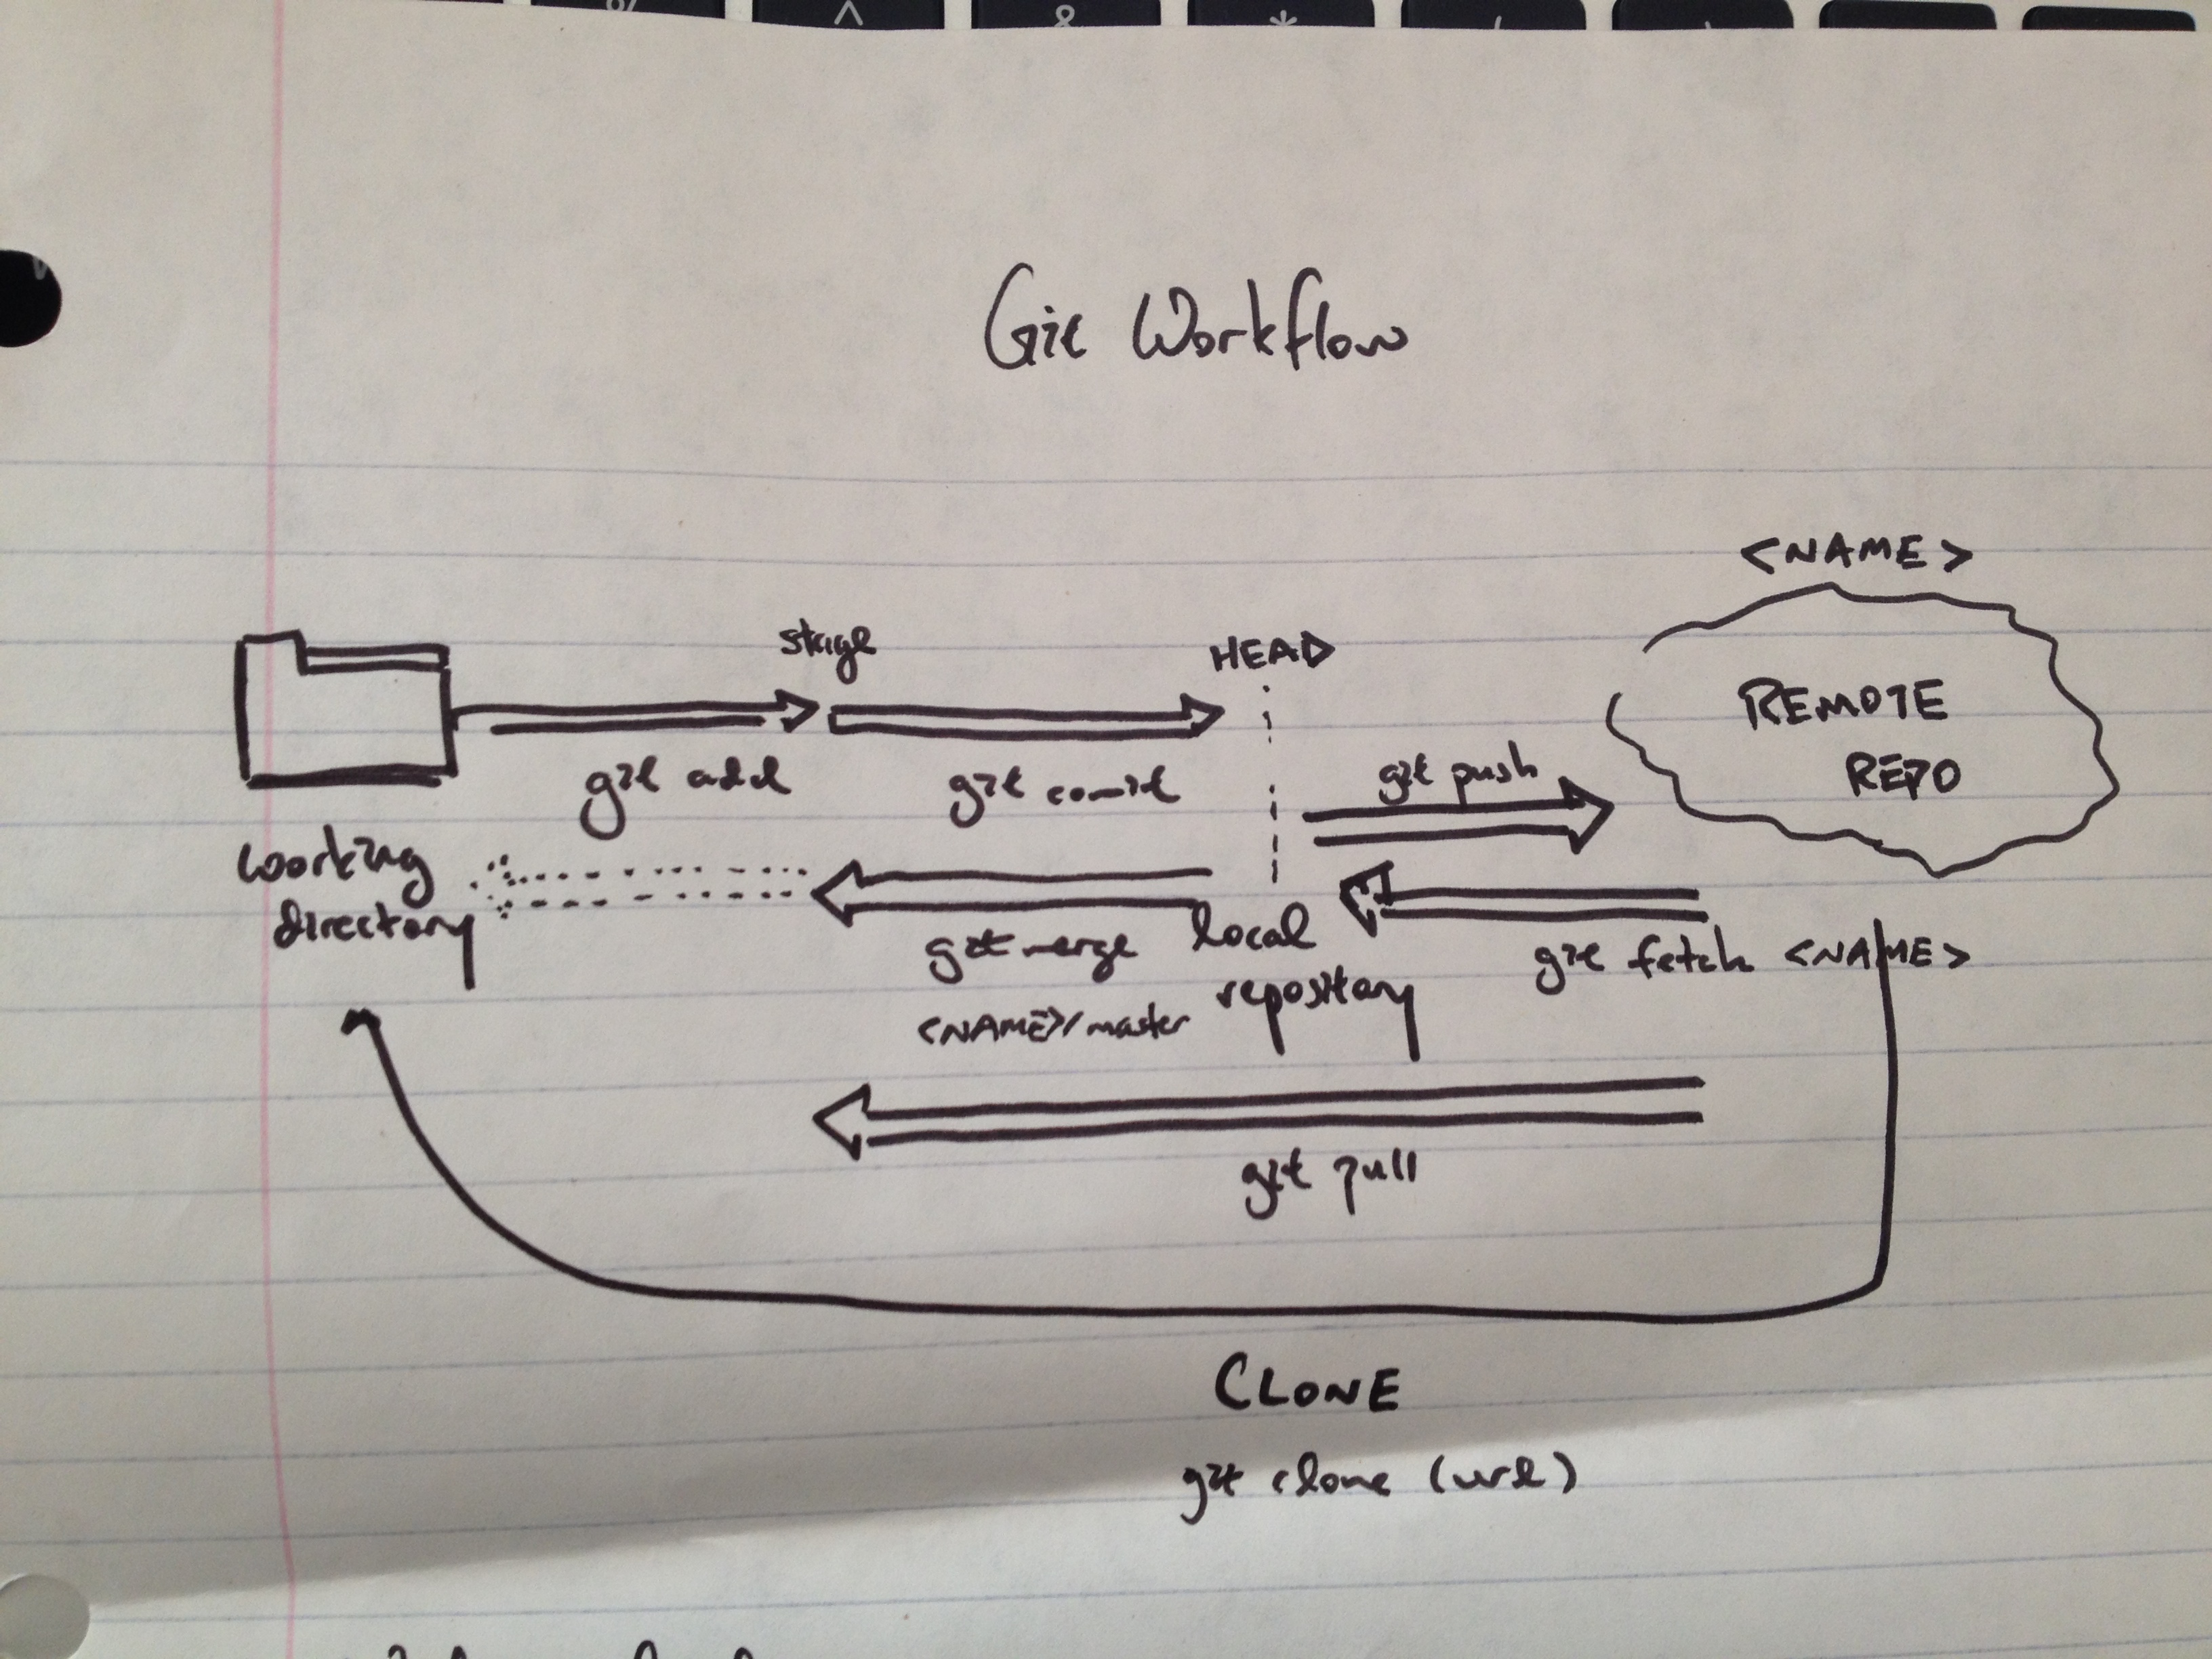 ^ & *
Git Workflow
<NAME>
stage
HEAD
REMOTE
REPO
git add
git comit
git push
working
directory
git merge
<NAME>/master
local
repository
git fetch <NAME>
git pull
CLONE
git clone (url)